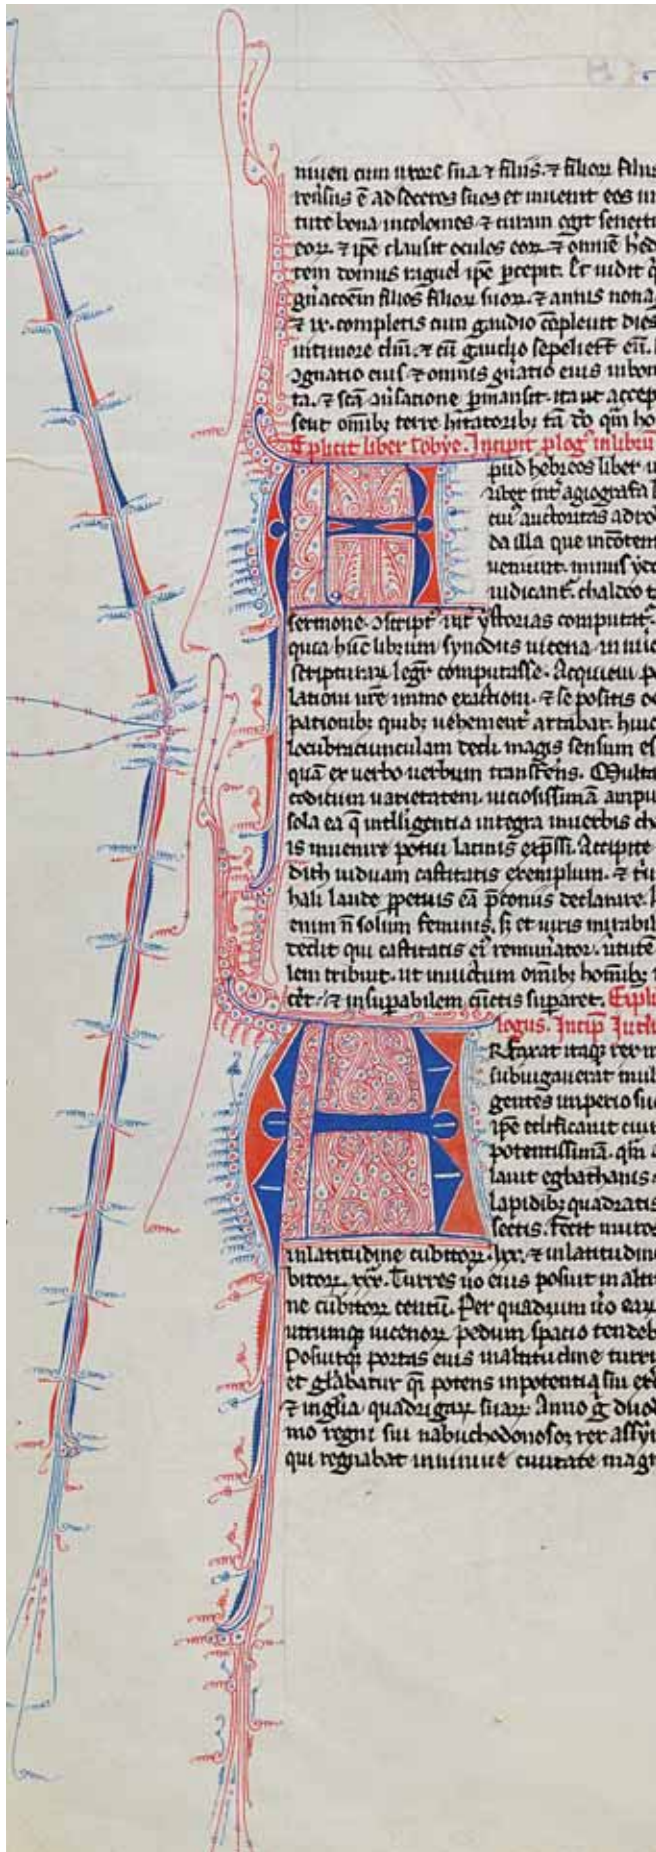 niuen cum uxore sua ⁊ filiis. ⁊ filiorū filiis
reūsus ē ad soceros suos et inuenit eos in
tute bona incolomes ⁊ curam egit senectu
eorꝝ ⁊ ipē clausit oculos eorꝝ ⁊ omnē hed
tem domus raguel ipē pcepit. Et uidit q̄
gn̄acoēm filios filiorꝝ suorꝝ. ⁊ annis nona
⁊ ix. completis cum gaudio cōpleuit dies
in timore dn̄i. ⁊ cū gaudio sepeliert̄ eū.
ꝯgnatio eius ⁊ omnis gn̄atio eius in bon
ta. ⁊ scā ꝯūsatione pmansit. ita ut accep
seut omībꝫ terre hītatoribꝫ tā do qm̄ ho
Explicit liber tobye. Incipit plog' in libru
pud hebreos liber u
iuxer int' agiografa l
cui' auctoritas ad ro
da illa que in cōtem
ueniunt. minus ydo
iudicant̄. chaldeo t
sermone. ꝯscript' int' ystorias computat̄.
quia hūc librum synodus nicena in nūe
scripturarꝝ legr̄ computasse. Acquieui po
lationi ur̄e immo exactioni. ⁊ se positis oc
pationibꝫ quibꝫ uehement' artabar. huic
locubratiunculam dedi. magis sensum es
quā ex uerbo uerbum transferēs. Multa
codicum uarietatem uiciosissimā ampu
sola ea q̄ intelligentia integra in uerbis cha
is inuenire potui latinis exp̄ssi. Accipite
dith uiduam castitatis exemplum. ⁊ tu
hali laude ppetuis eā p̄coniis declarate. h
enim n̄ solum feminis. sꝫ et uiris imitabil
dedit qui castitatis ei' remun̄ator. uirtutē
lem tribuit. ut inuictum omībꝫ homībꝫ
c̄et. ⁊ insupabilem cūctis supāret. Expli
logus. Incip̄ Judi
Rfaxat itaqꝫ rex m
subiugauerat mul
gentes imperio suo
ipē edificauit ciui
potentissimā. qm̄ a
lauit egbathanis
lapidibꝫ quadratis
sectis. fecit muros
in latitudine cubitorꝝ. lxx. ⁊ in latitudine
bitorꝝ xxx. Turres ūo eius posuit in alti
ne cūbitorꝝ centū. Per quadrum ūo earꝝ
utrumqꝫ uicenorꝝ pedum spacio tendeb
Posuitqꝫ portas eius in altitudine turri
et gl̄abatur q̄i potens in potentia sui exe
⁊ in gl̄ia quadrigarꝝ suarꝝ. Anno g̊ duod
mo regni sui nabuchodonosor rex assyri
qui regnabat in niniue ciuitate magn